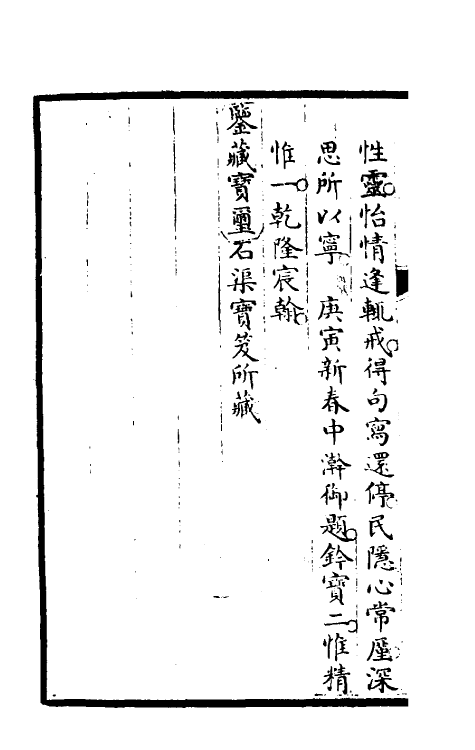 性靈怡情逢輒戒得句寫還停民隱心常厪深
思所以寧　庚寅新春中澣御題鈐寶二惟精
惟一乾隆宸翰
鑒藏寶璽石渠寶笈所藏